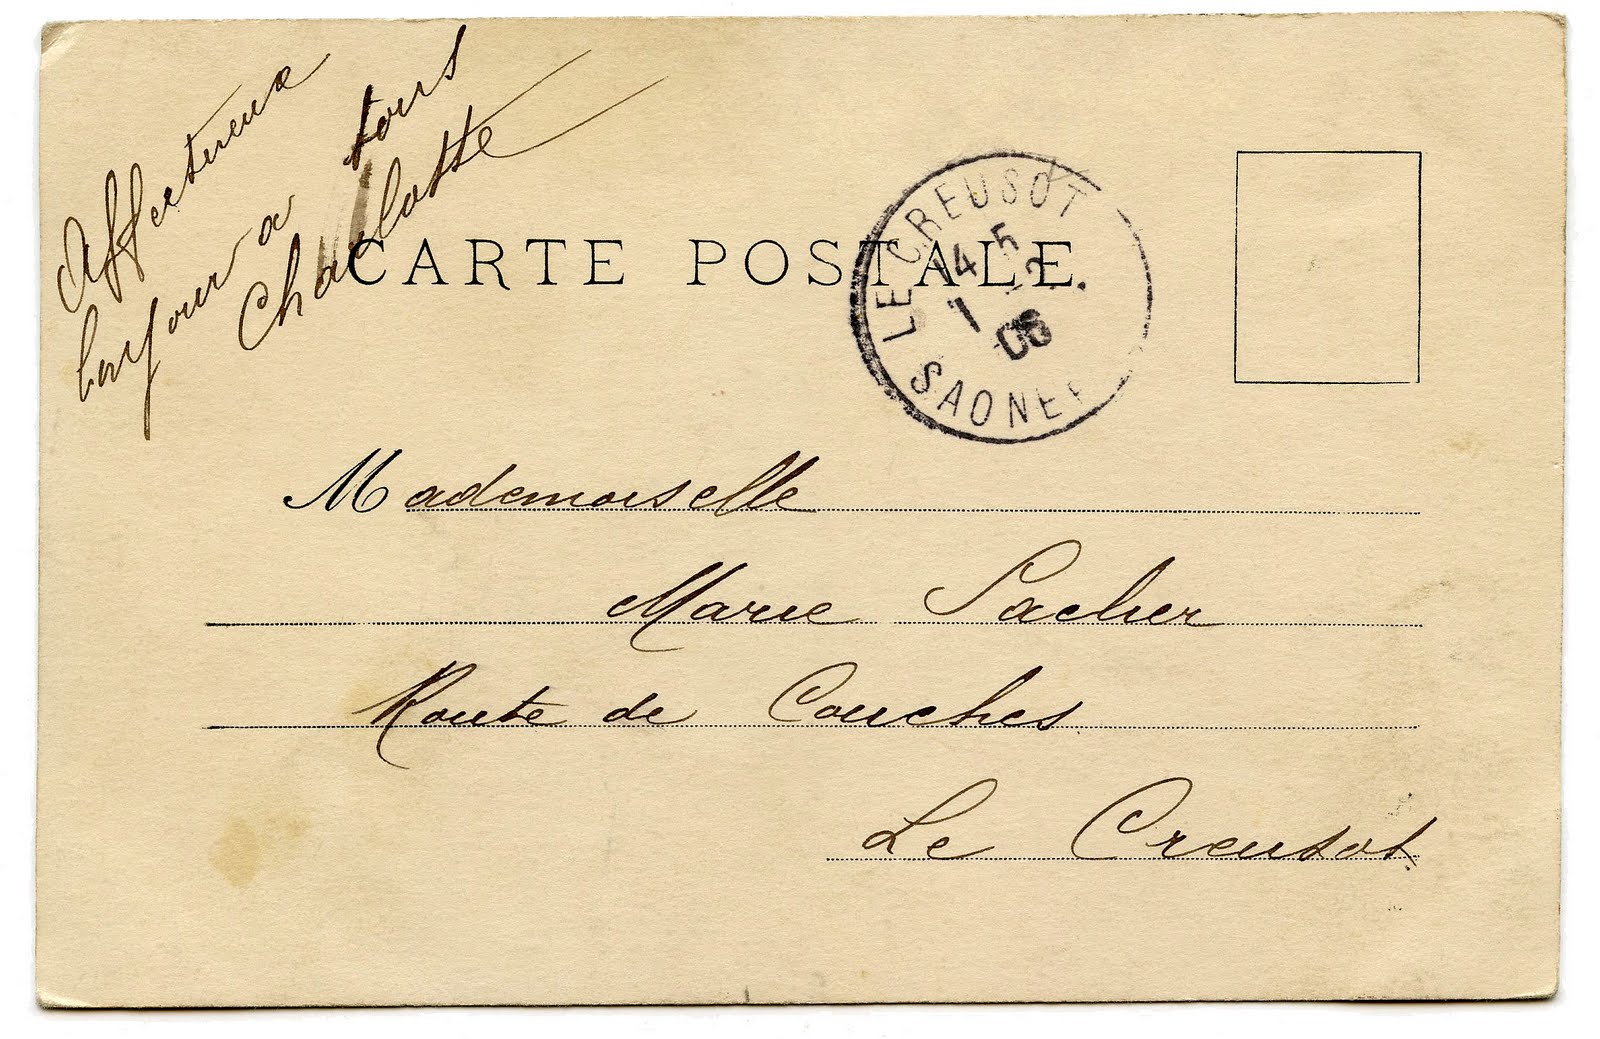 Affectueux
bonjour a tous
Charlotte
CARTE POSTALE.
LE CREUSOT
14 5
1 2
06
SAONE
Mademoiselle
Marie Sacher
Route de Couches
Le Creusot